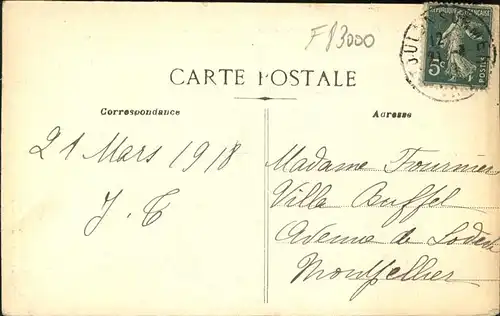 F 83000
RÉPUBLIQUE FRANÇAISE
5c
POSTES
CARTE POSTALE
Correspondance
Adresse
21 Mars 1918
J. C
Madame Fournier
Villa Buffel
Avenue de Lodève
Montpellier